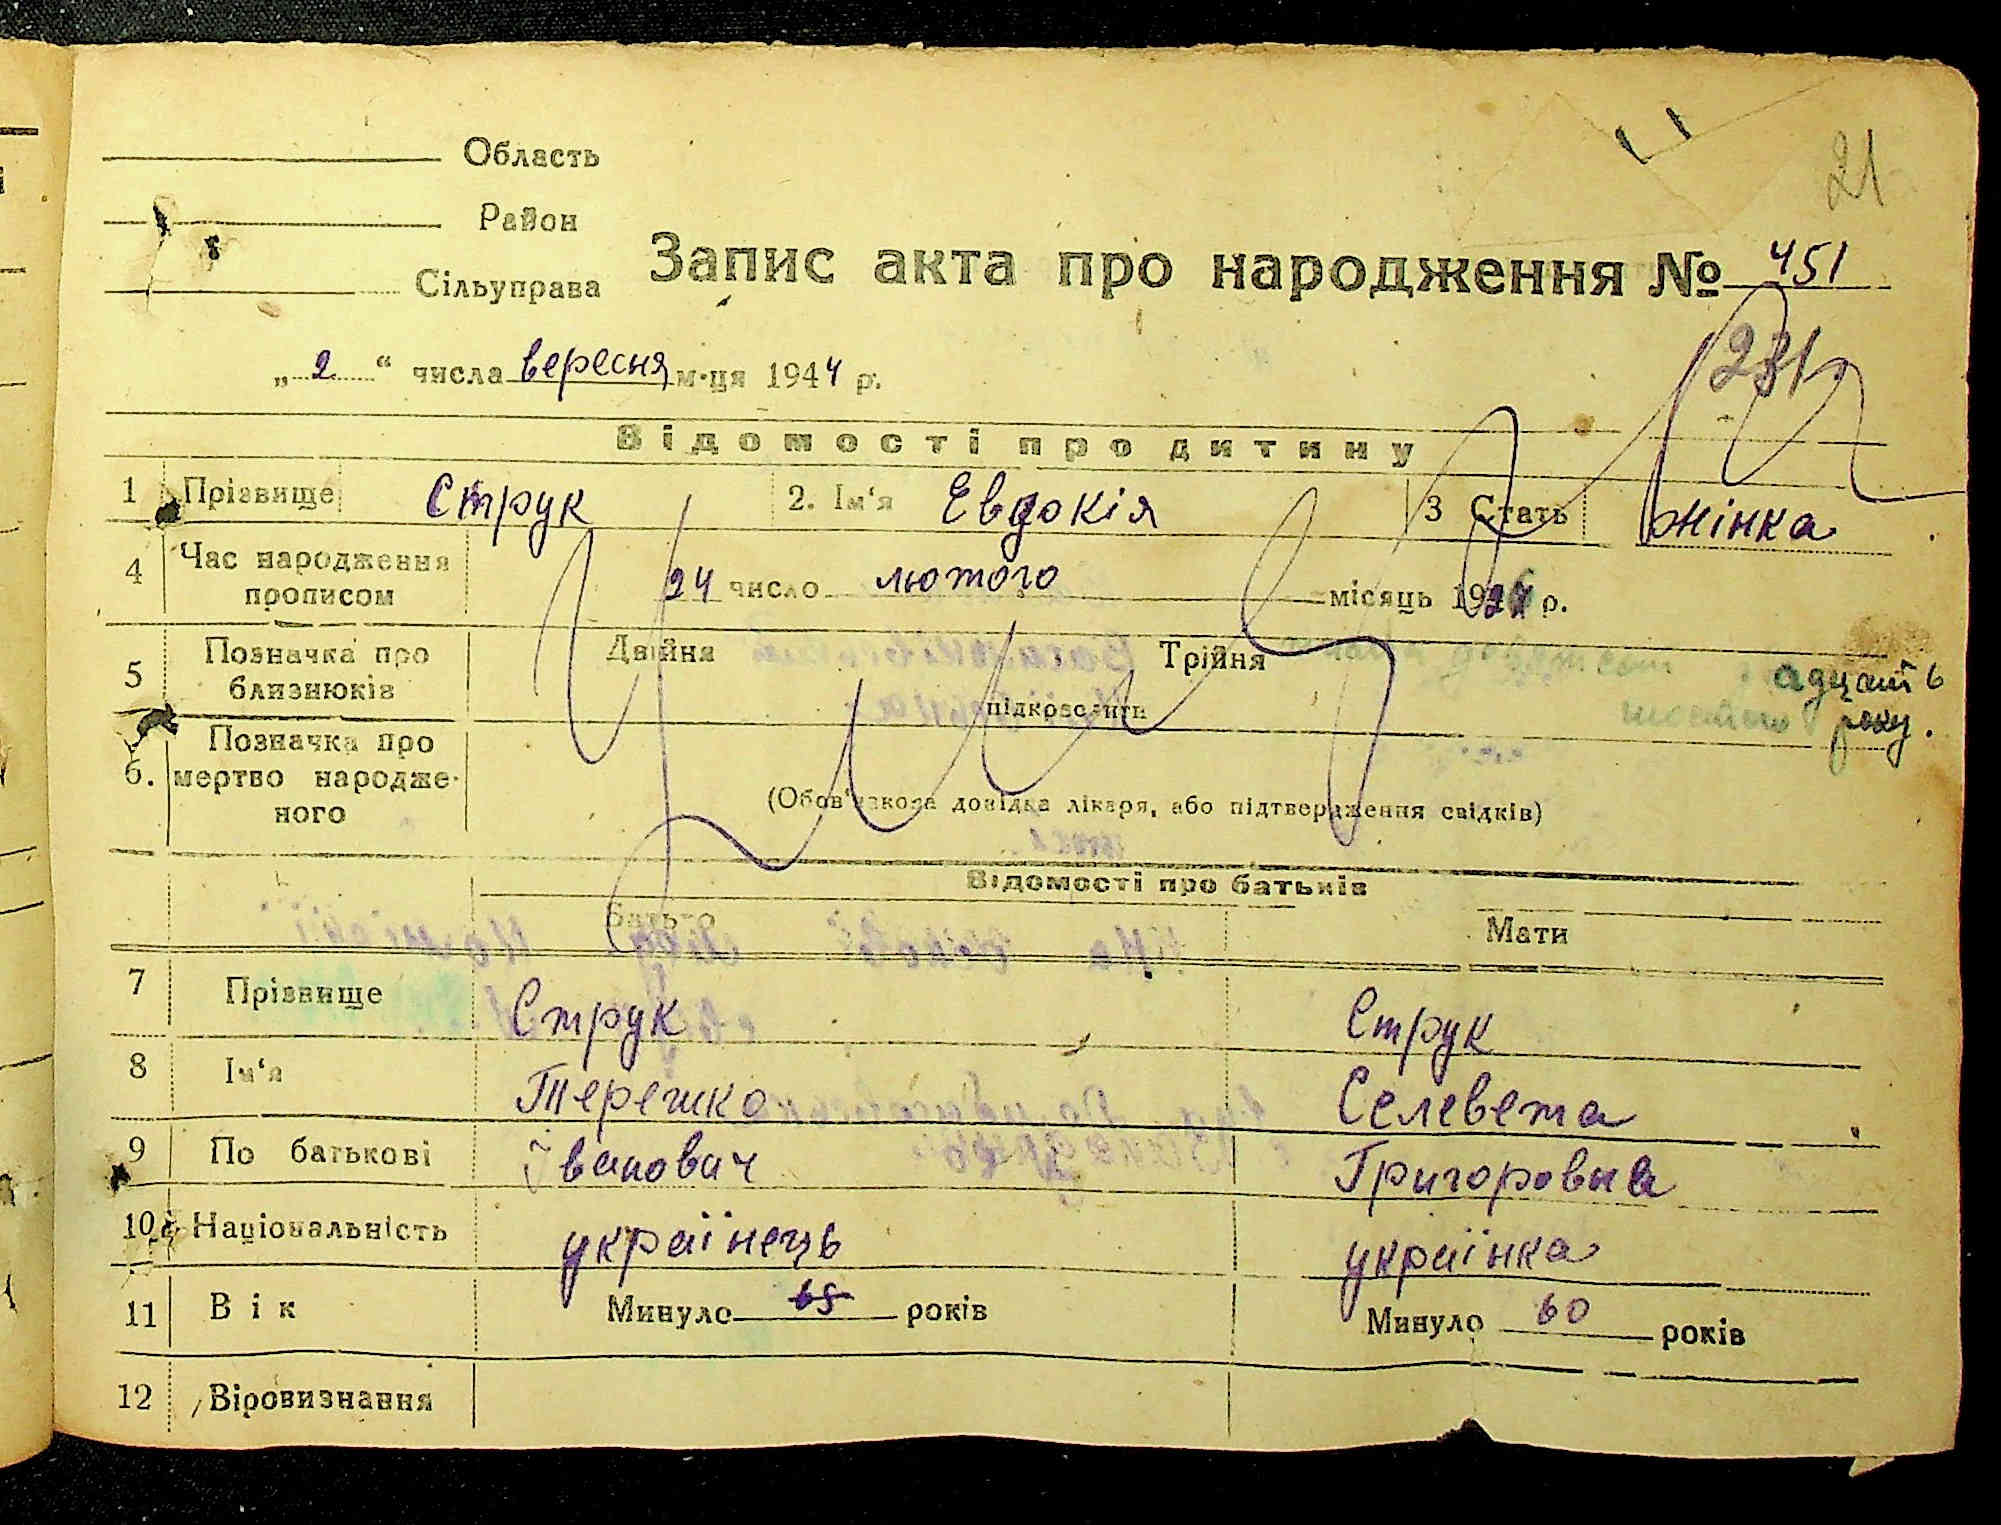 21
Область
Район
Сільуправа
Запис акта про народження № 451
231
„ 2 “ числа вересня м-ця 1944 р.
Відомості про дитину
1 Прізвище Струк 2. Ім‘я Евдокія 3 Стать жінка
4 Час народження прописом 24 число лютого місяць 192 р.
5 Позначка про близнюків Двійня Трійня
адцять
року.
підкреслити
6. Позначка про мертво народже-
ного
(Обов‘язкова довідка лікаря, або підтвердження свідків)
Відомості про батьків
Батько Мати
7 Прізвище Струк Струк
8 Ім‘я Терешко Селевета
9 По батькові Івановач Григоровна
10 Національність українець українка
11 Вік Минуло 65 років Минуло 60 років
12 Віровизнання